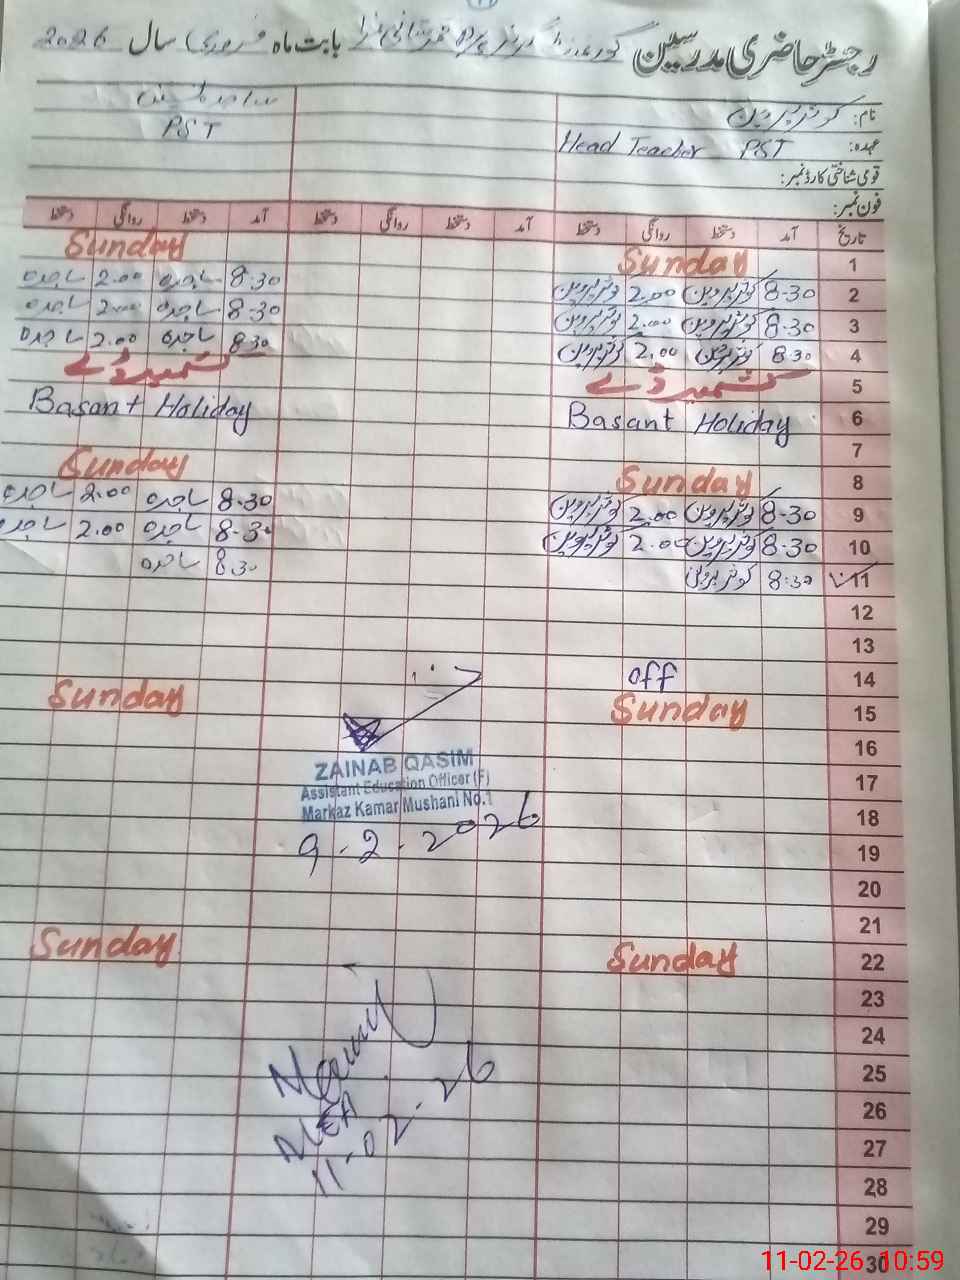 رجسٹر حاضری مدرسین گورنمنٹ گرلز بابت ماہ فروری سال 2026
نام: کوثر پروین
عہدہ: Head Teacher PST PST
قومی شناختی کارڈ نمبر:
فون نمبر:
تاریخ آمد دستخط روانگی دستخط آمد دستخط روانگی دستخط آمد دستخط روانگی دستخط
1 Sunday Sunday
2 8-30 کوثر پروین 2.00 کوثر پروین 8-30 ساجدہ 2.00 ساجدہ
3 8-30 کوثر پروین 2.00 کوثر پروین 8-30 ساجدہ 2.00 ساجدہ
4 8-30 کوثر پروین 2.00 کوثر پروین 8-30 ساجدہ 2.00 ساجدہ
5 کشمیر ڈے کشمیر ڈے
6 Basant Holiday Basant Holiday
7
8 Sunday Sunday
9 8-30 کوثر پروین 2.00 کوثر پروین 8-30 ساجدہ 2.00 ساجدہ
10 8-30 کوثر پروین 2.00 کوثر پروین 8-30 ساجدہ 2.00 ساجدہ
11 8-30 کوثر پروین 8-30 ساجدہ
12
13
14 off
15 Sunday Sunday
16
17
18
19
20
21
22 Sunday Sunday
23
24
25
26
27
28
29
30
ZAINAB QASIM
Assistant Education Officer (F)
Markaz Kamar Mushani No.1
9-2-2026
MEA
11-02-26
11-02-26 10:59